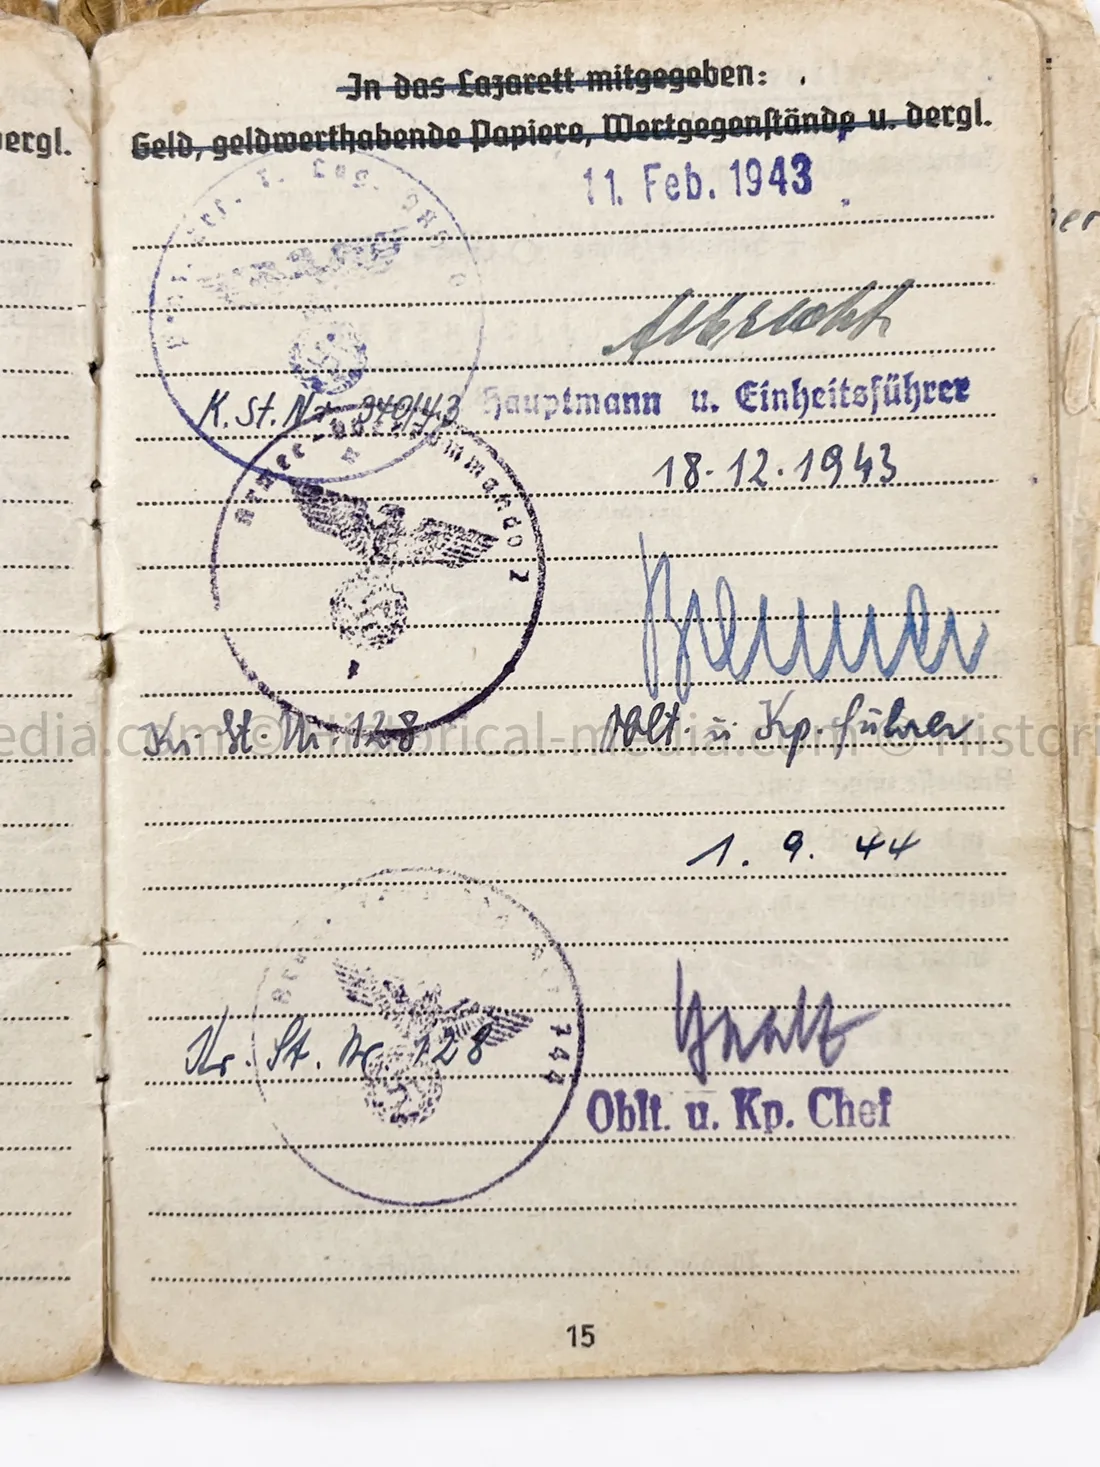 dergl.
In das Lazarett mitgegeben:
Geld, geldwerthabende Papiere, Wertgegenstände u. dergl.
11. Feb. 1943
Albrecht
K. St. Nr. 940/43 Hauptmann u. Einheitsführer
18.12.1943
Armee-Oberkommando 7
Kr. St. Nr. 128 Oblt u Kp. führer
edia.com © Historical-media.com © Histor
1. 9. 44
744
Kr. St. Nr 128
Oblt. u. Kp. Chef
15